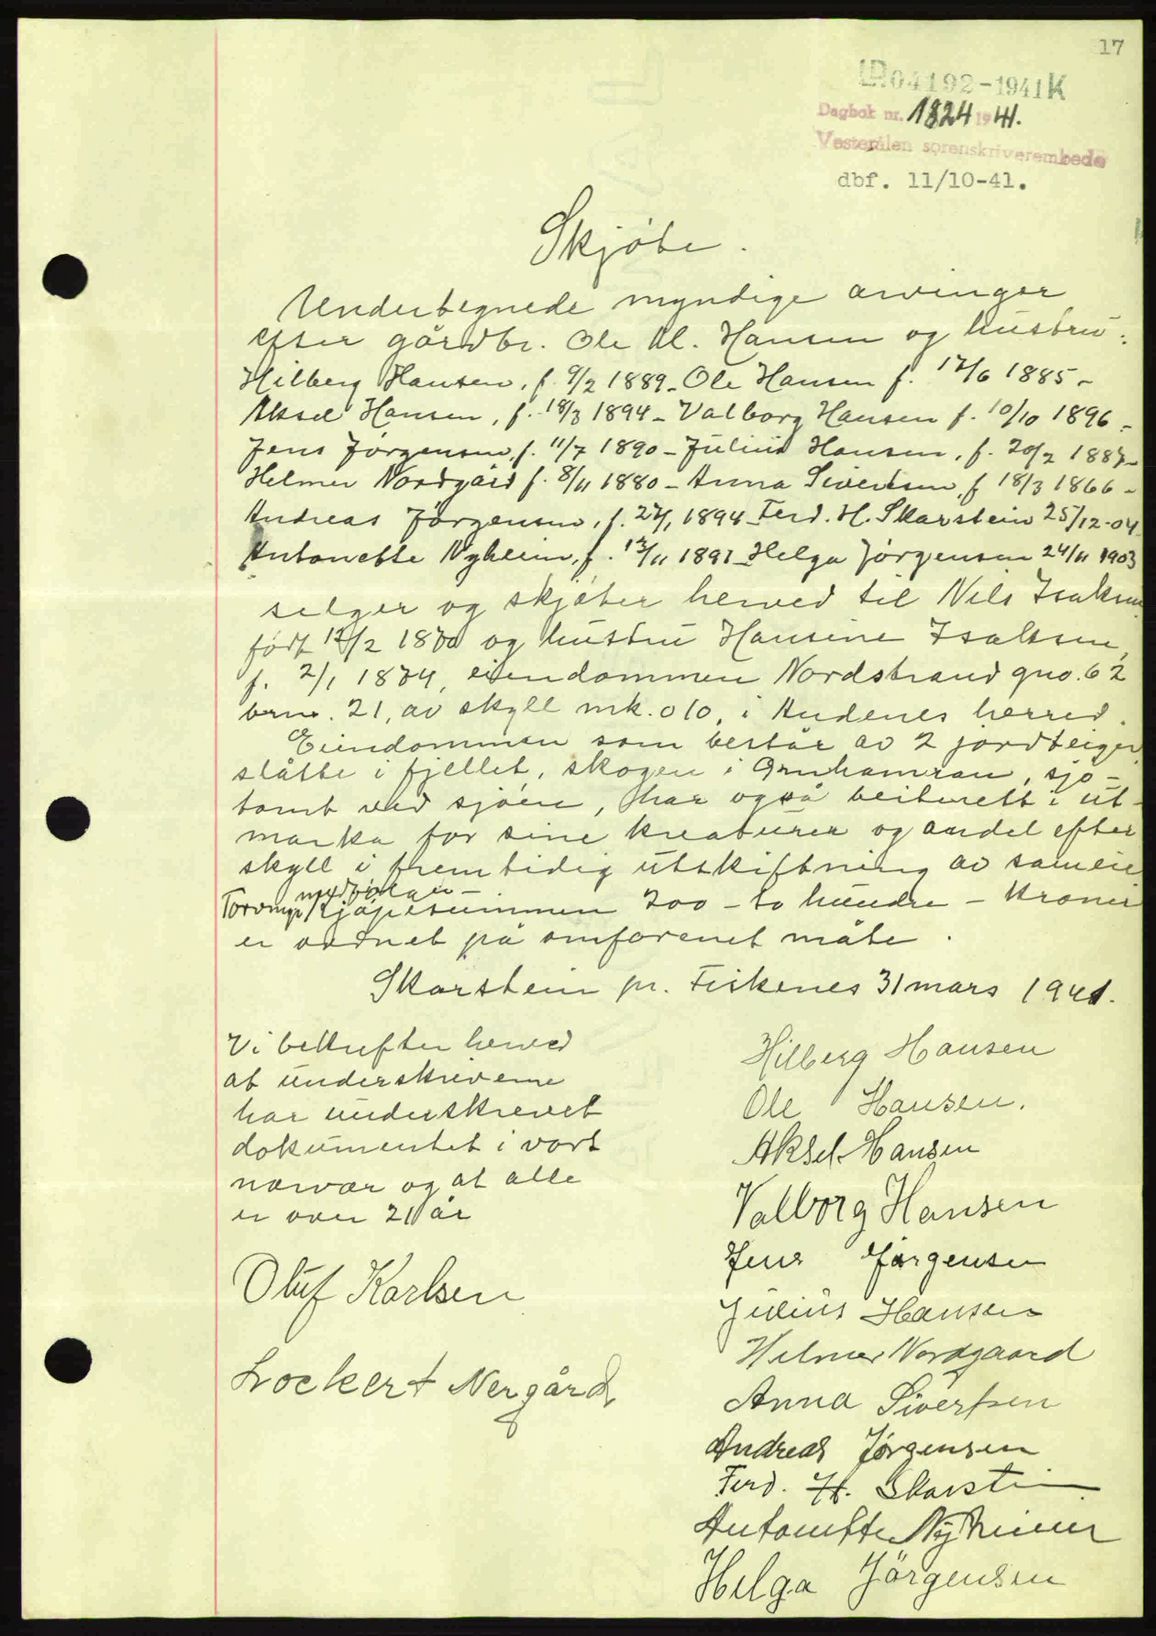 17
LR.04192-1941K
Dagbok nr. 1824 1941.
Vesterålen sorenskriverembede
dbf. 11/10-41.
Skjöte.
Undertegnede myndige arvinger
efter gårdbr. Ole Kl. Hansen og hustru:
Hilberg Hansen, f. 9/2 1889 - Ole Hansen f. 17/6 1885 -
Aksel Hansen, f. 18/3 1894 - Valborg Hansen f. 10/10 1896 -
Jens Jörgensen, f. 11/7 1890 - Julius Hansen, f. 20/2 1887 -
Helmer Nordgård f. 8/11 1880 - Anna Sivertsen, f 18/3 1866 -
Andreas Jörgensen, f. 27/1 1894 - Ferd. H. Skarstein 25/12-04
Antonette Nyheim, f. /11 1891 - Helga Jörgensen 24/11 1903
selger og skjöter herved til Nils Isaksen
født 12/2 1870 og hustru Hansine Isaksen,
f. 2/1 1874, eiendommen Nordstrand gno. 62
brno. 21, av skyll mk. 010, i Andenes herred.
Eiendommen som består av 2 jordteiger,
slåtte i fjellet, skogen i , sjø-
tomt ved sjøen, har også beiterett i ut-
marka for sine kreaturer og andel efter
skyll i fremtidig utskiftning av sameie
Torvmyr
Kjøpesummen 200 - to hundre - kroner
er ordnet på omforenet måte.
Skarstein pr. Fiskenes 31 mars 1941.
Vi bekrefter herved
at underskriverne
har underskrevet
dokumentet i vort
nærvær og at alle
er over 21 år
Oluf Karlsen
Lockert Nergård
Hilberg Hansen
Ole Hansen.
Aksel Hansen
Valborg Hansen
Jens Jørgensen
Julius Hansen
Helmer Nordgaard
Anna Sivertsen
Andreas Jørgensen
Ferd. H. Skarstein
Antonette Nyheim
Helga Jörgensen